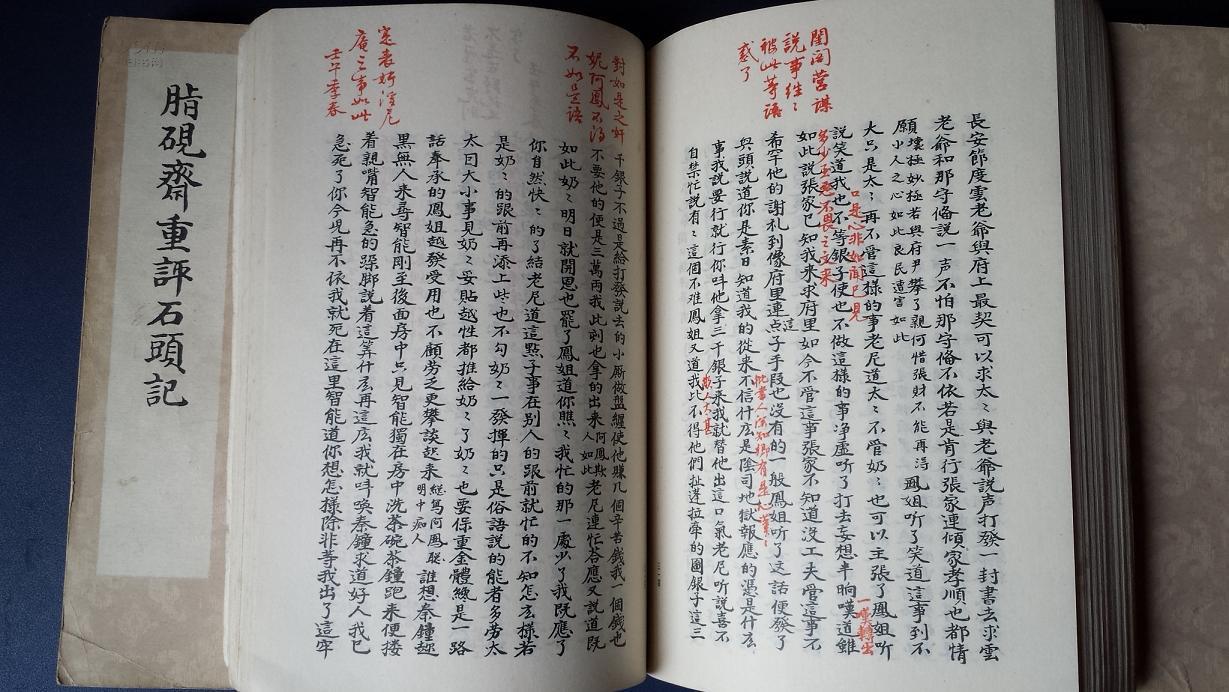 脂硯齋重評石頭記
閨閣營謀
說事徃〻
被此等語
惑了
長安節度雲老爺與府上最契可以求太〻與老爺說声打發一封書去求雲
老爺和那守俻說一声不怕那守俻不依若是肯行張家連傾家孝順也都情
願壞極妙極若與府尹攀了親何惜張財不能再得
小人之心如此良民遭害如此
鳳姐听了笑道這事到不
大只是太〻再不管這樣的事老尼道太〻不管奶〻也可以主張了鳳姐听
口是心非如聞已見
說笑道我也不等銀子使也不做這樣的事净虛听了打去妄想半晌嘆道雖
一嘆轉出
多少至惡不畏之文來
如此說張家已知我來求府里如今不管這事張家不知道没工夫管這事不
希罕他的謝礼到像府里連這点子手段也没有的一般鳳姐听了这話便發了
興頭說道你是素日知道我的從来不信什庅是陰司地獄報應的憑是什庅
批書人深知卿有是心
事我說要行就行你呌他拿三千銀子来我就替他出這口氣老尼听說喜不
自禁忙說有〻這個不难鳳姐又道我比不得他們扯蓬拉牽的圖銀子這三
欺人太甚
對如是之奸
妮阿鳳不得
不如是語
千銀子不過是給打發說去的小厮做盤纏使他賺几個辛苦錢我一個錢也
不要他的便是三萬兩我此刻也拿的出来
阿鳳欺
人如此
老尼連忙答應又說道既
如此奶〻明日就開恩也罷了鳳姐道你瞧〻我忙的那一處少了我既應了
你自然快〻的了結老尼道這點子事在别人的跟前就忙的不知怎么様若
是奶〻的跟前再添上些也不勾奶〻一發揮的只是俗語說的能者多劳太
太因大小事見奶〻妥貼越性都推給奶〻了奶〻也要保重金體纔是一路
話奉承的鳳姐越發受用也不顧劳乏更攀談起来
總寫阿鳳聪
明中痴人
誰想秦鐘趂
黑無人来尋智能剛至後面房中只見智能獨在房中洗茶碗茶鐘跑来便摟
着親嘴智能急的跺脚說着這筭什庅再這庅我就呌唤秦鐘求道好人我已
急死了你今児再不依我就死在這里智能道你想怎樣除非等我出了這牢
實表奸淫尼
庵之事如此
壬午季春